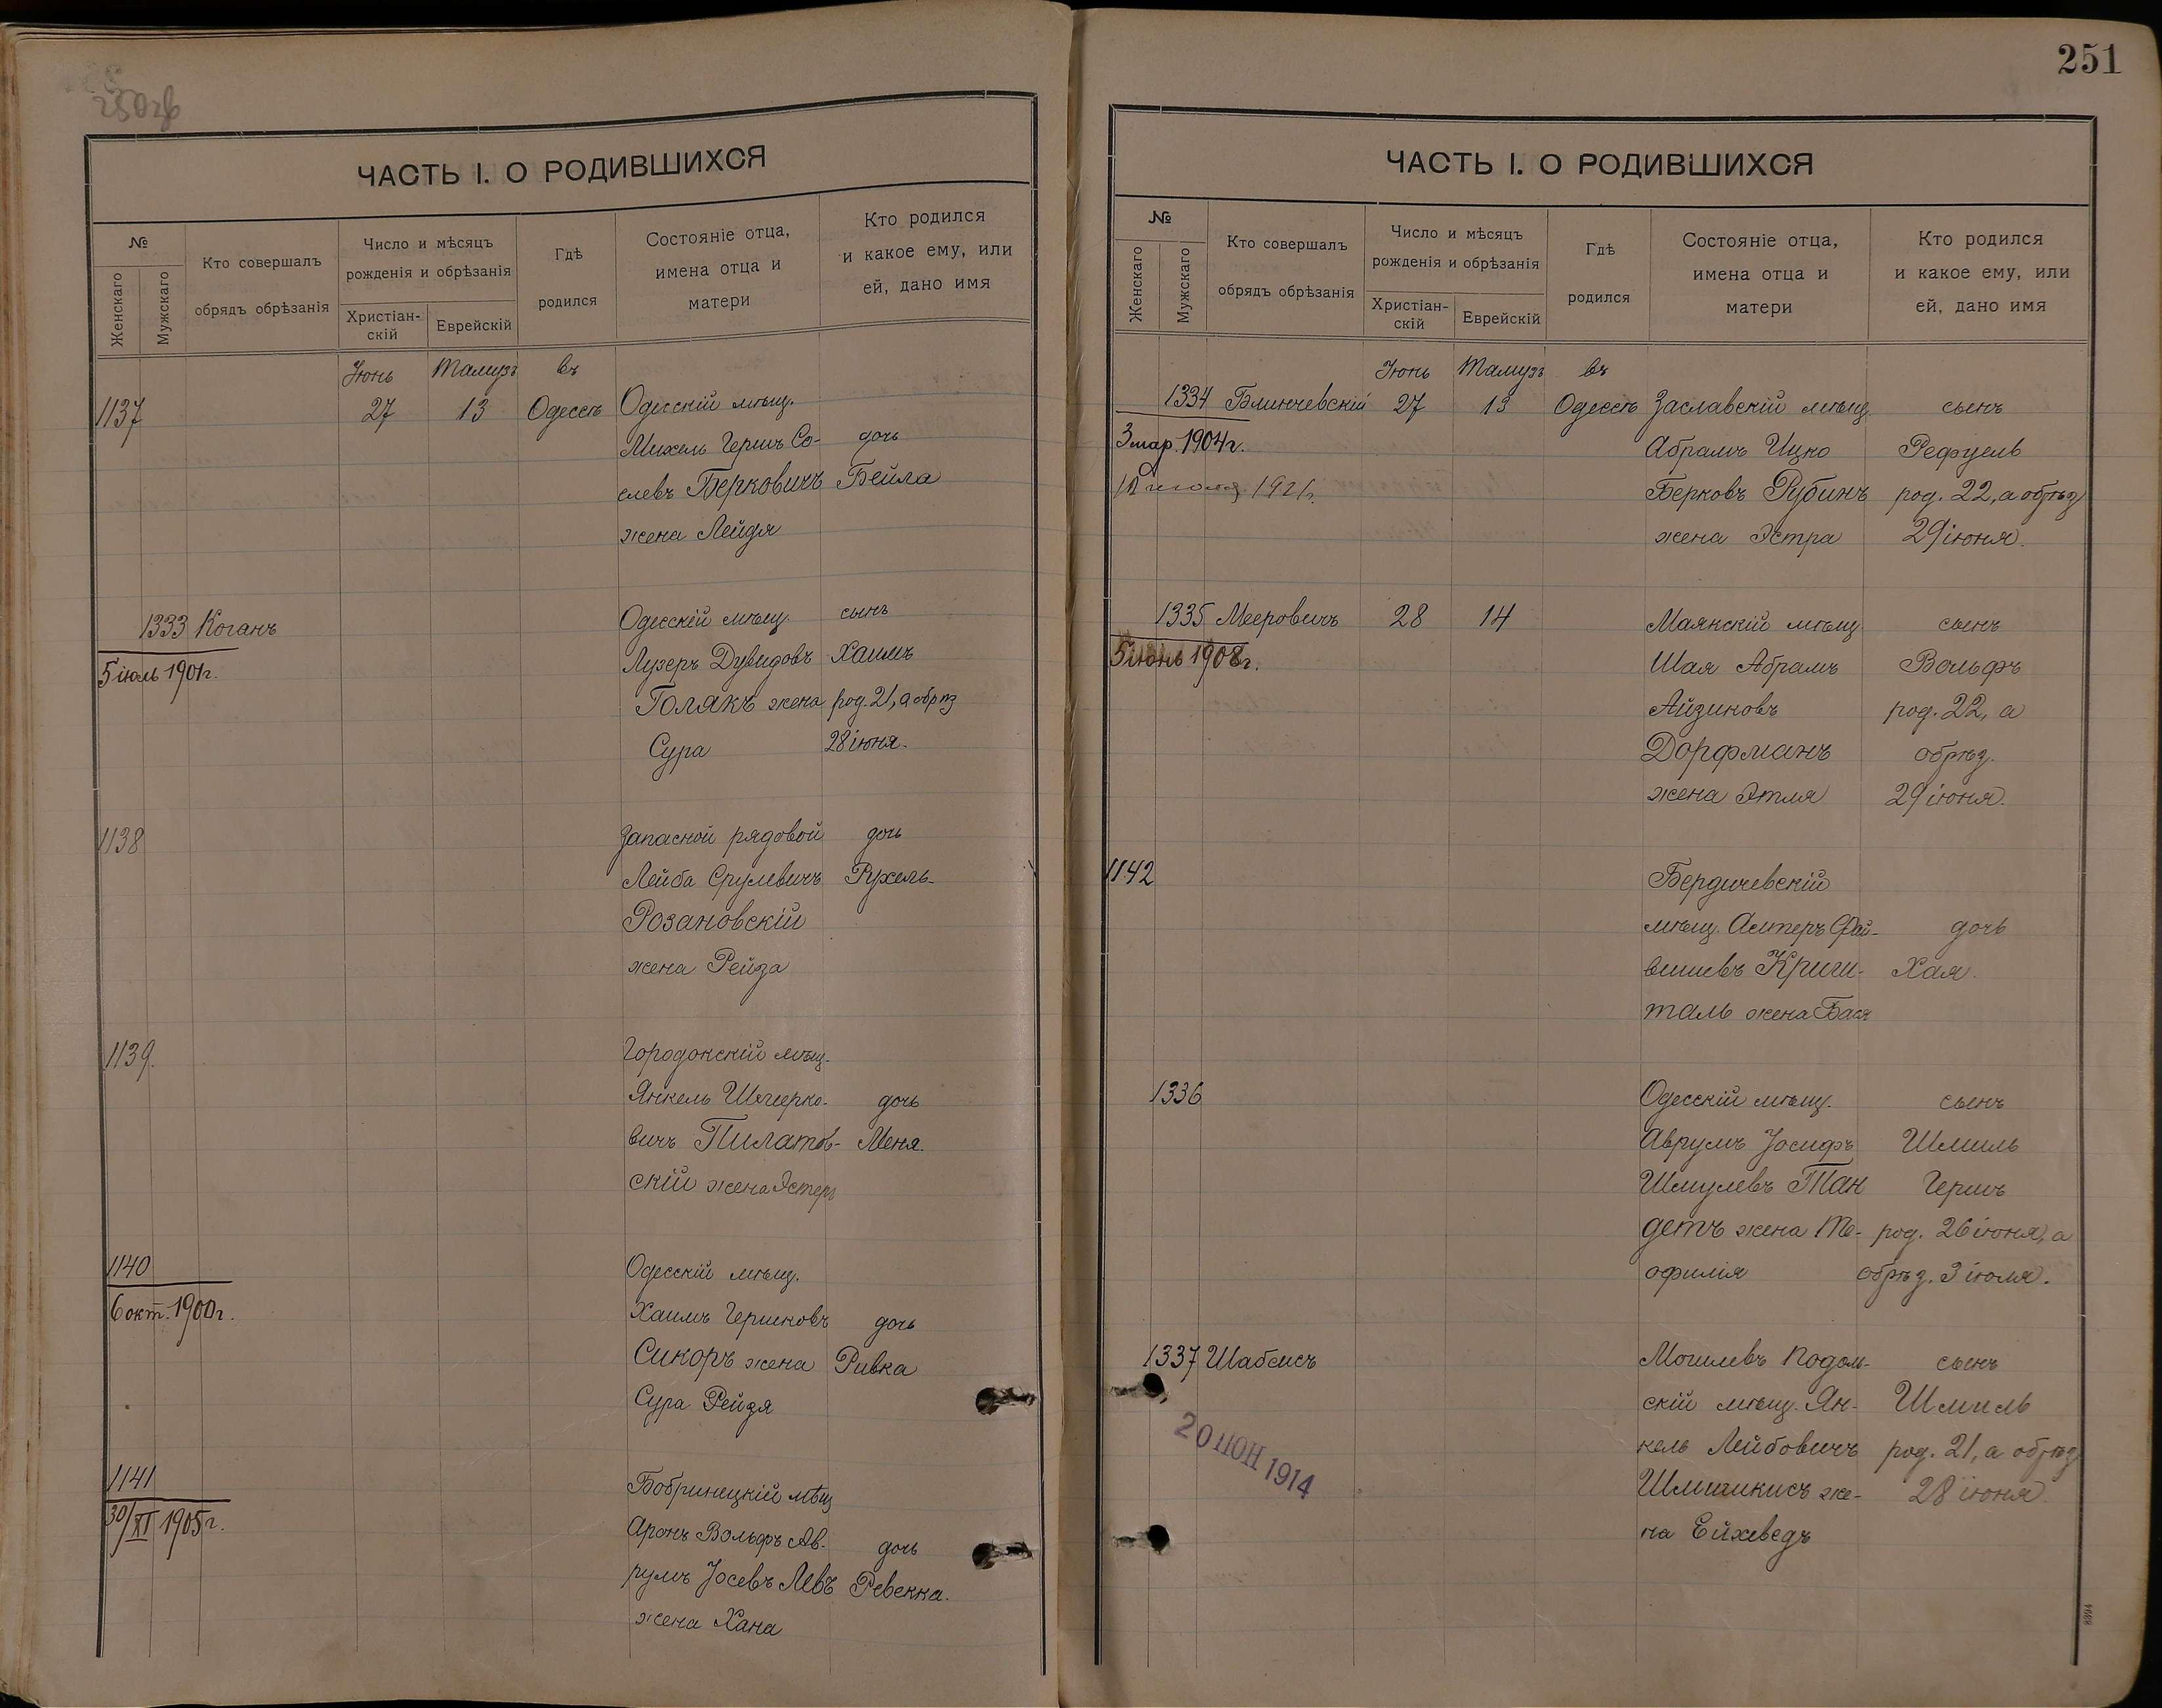 250 об
ЧАСТЬ I. О РОДИВШИХСЯ
№
Женскаго
Мужскаго
Кто совершалъ
обрядъ обрѣзанія
Число и мѣсяцъ
рожденія и обрѣзанія
Христіан-
скій
Еврейскій
Гдѣ
родился
Состояніе отца,
имена отца и
матери
Кто родился
и какое ему, или
ей, дано имя
Іюнь Тамузъ въ
1137 27 13 Одессѣ Одесскій мѣщ.
Михель Гершъ Со- дочь
елевъ Берковичъ Бейла
жена Лейдя
1333 Коганъ Одесскій мѣщ. сынъ
5 іюль 1901г. Лузеръ Дувидовъ Хаимъ
Голякъ жена род. 21, а обрѣз
Сура 28 іюня.
1138 Запасной рядовой дочь
Лейба Срулевичъ Рухель
Розановскій
жена Рейза
1139. Городокскій мѣщ.
Янкель Шмерко- дочь
вичъ Пилатов- Меня.
скій жена Эстеръ
1140 Одесскій мѣщ.
6 окт. 1900г. Хаимъ Гершковъ дочь
Сикоръ жена Ривка
Сура Рейзя
1141 Бобринецкій мѣщ
30/XI 1905г. Аронъ Вольфъ Ав- дочь
румъ Іосевъ Левъ Ревекка.
жена Хана
251
ЧАСТЬ I. О РОДИВШИХСЯ
№
Женскаго
Мужскаго
Кто совершалъ
обрядъ обрѣзанія
Число и мѣсяцъ
рожденія и обрѣзанія
Христіан-
скій
Еврейскій
Гдѣ
родился
Состояніе отца,
имена отца и
матери
Кто родился
и какое ему, или
ей, дано имя
Іюнь Тамузъ въ
1334 Блинчевскій 27 13 Одессѣ Заславскій мѣщ. сынъ
3 мар. 1904г. Абрамъ Ицко Рефуель
1921г. Берковъ Рубинъ род. 22, а обрѣз
жена Эстра 29 іюня.
1335 Мееровичъ 28 14 Маякскій мѣщ сынъ
5 іюнь 1908г. Шая Абрамъ Вольфъ
Айзиковъ род. 22, а
Дорфманъ обрѣз.
жена Этля 29 іюня.
1142 Бердичевскій
мѣщ. Алтеръ Фай- дочь
вишевъ Криш- Хая.
таль жена Бася
1336 Одесскій мѣщ. сынъ
Аврумъ Іосифъ Шмиль
Шмулевъ Тан Гершъ
детъ жена Те- род. 26 іюня, а
офилія обрѣз. 3 іюля.
1337 Шабсисъ Могилевъ Подоль- сынъ
скій мѣщ. Ян- Шмиль
кель Лейбовичъ род. 21, а обрѣз
Шлишкисъ же- 28 іюня
на Ейхеведъ
20 ІЮН 1914